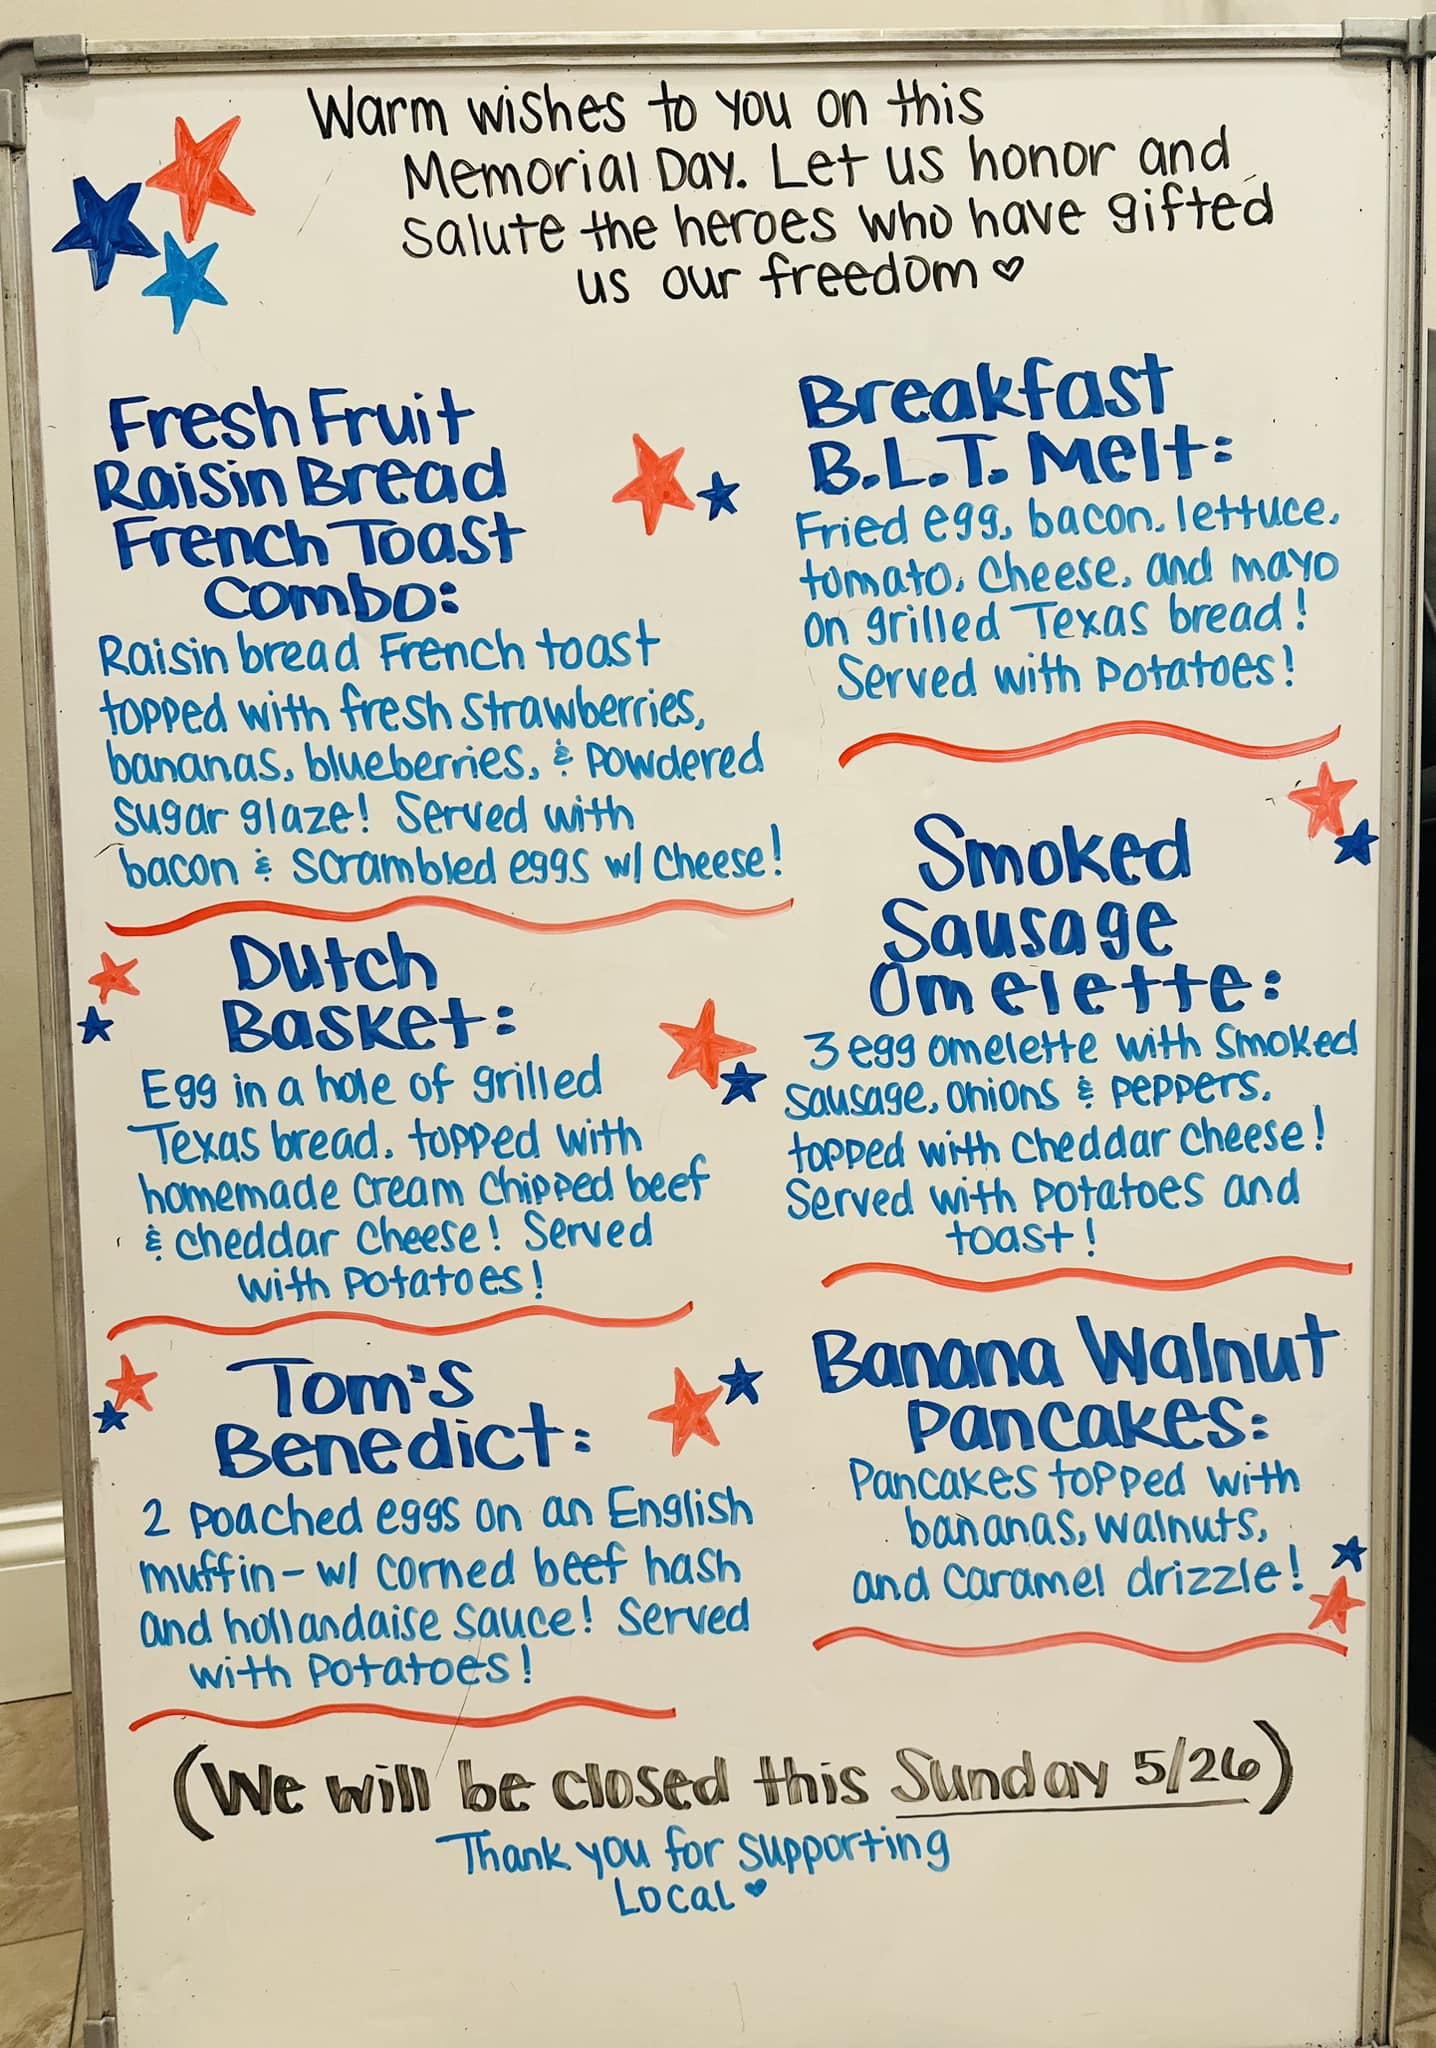 Warm wishes to you on this
Memorial Day. Let us honor and
salute the heroes who have gifted
us our freedom ♡
Fresh Fruit
Raisin Bread
French Toast
Combo:
Raisin bread French toast
topped with fresh strawberries,
bananas, blueberries, & powdered
sugar glaze! Served with
bacon & scrambled eggs w/ cheese!
Dutch
Basket:
Egg in a hole of grilled
Texas bread, topped with
homemade cream chipped beef
& cheddar cheese! Served
with potatoes!
Tom's
Benedict:
2 poached eggs on an English
muffin - w/ corned beef hash
and hollandaise sauce! Served
with potatoes!
Breakfast
B.L.T. Melt:
Fried egg, bacon, lettuce,
tomato, cheese, and mayo
on grilled Texas bread!
Served with potatoes!
Smoked
Sausage
Omelette:
3 egg omelette with smoked
sausage, onions & peppers,
topped with cheddar cheese!
Served with potatoes and
toast!
Banana Walnut
Pancakes:
Pancakes topped with
bananas, walnuts,
and caramel drizzle!
(We will be closed this Sunday 5/26)
Thank you for supporting
Local ♥